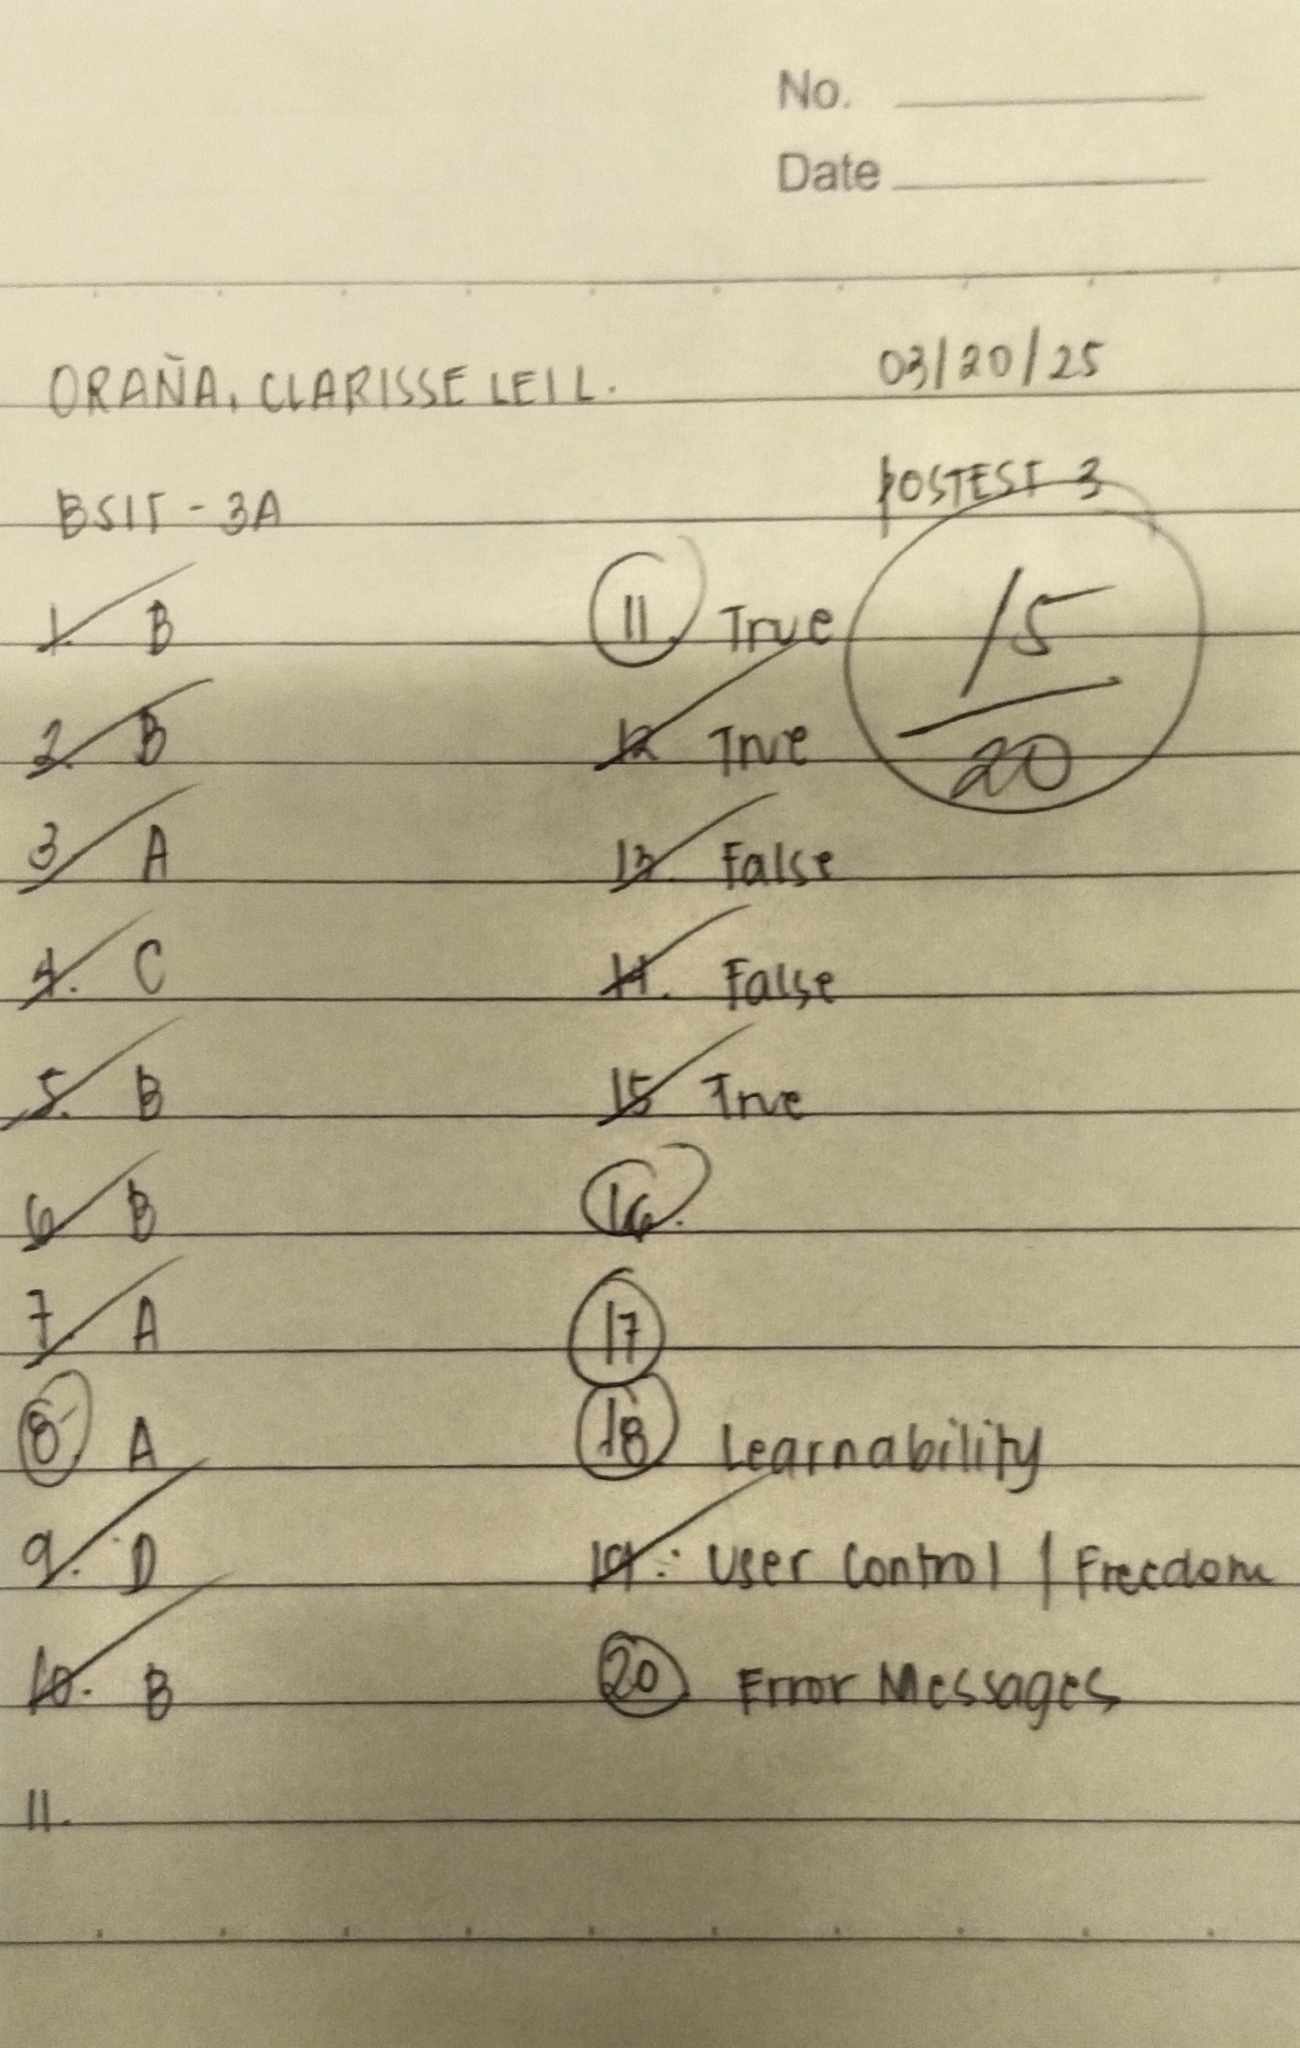 No.
Date
ORAÑA, CLARISSE LEI L.
03/20/25
BSIT - 3A
POSTEST 3
15
20
1. B
2. B
3. A
4. C
5. B
6. B
7. A
8. A
9. D
10. B
11.
11. True
12. True
13. False
14. False
15. True
16.
17
18 Learnability
19. User Control / Freedom
20 Error Messages